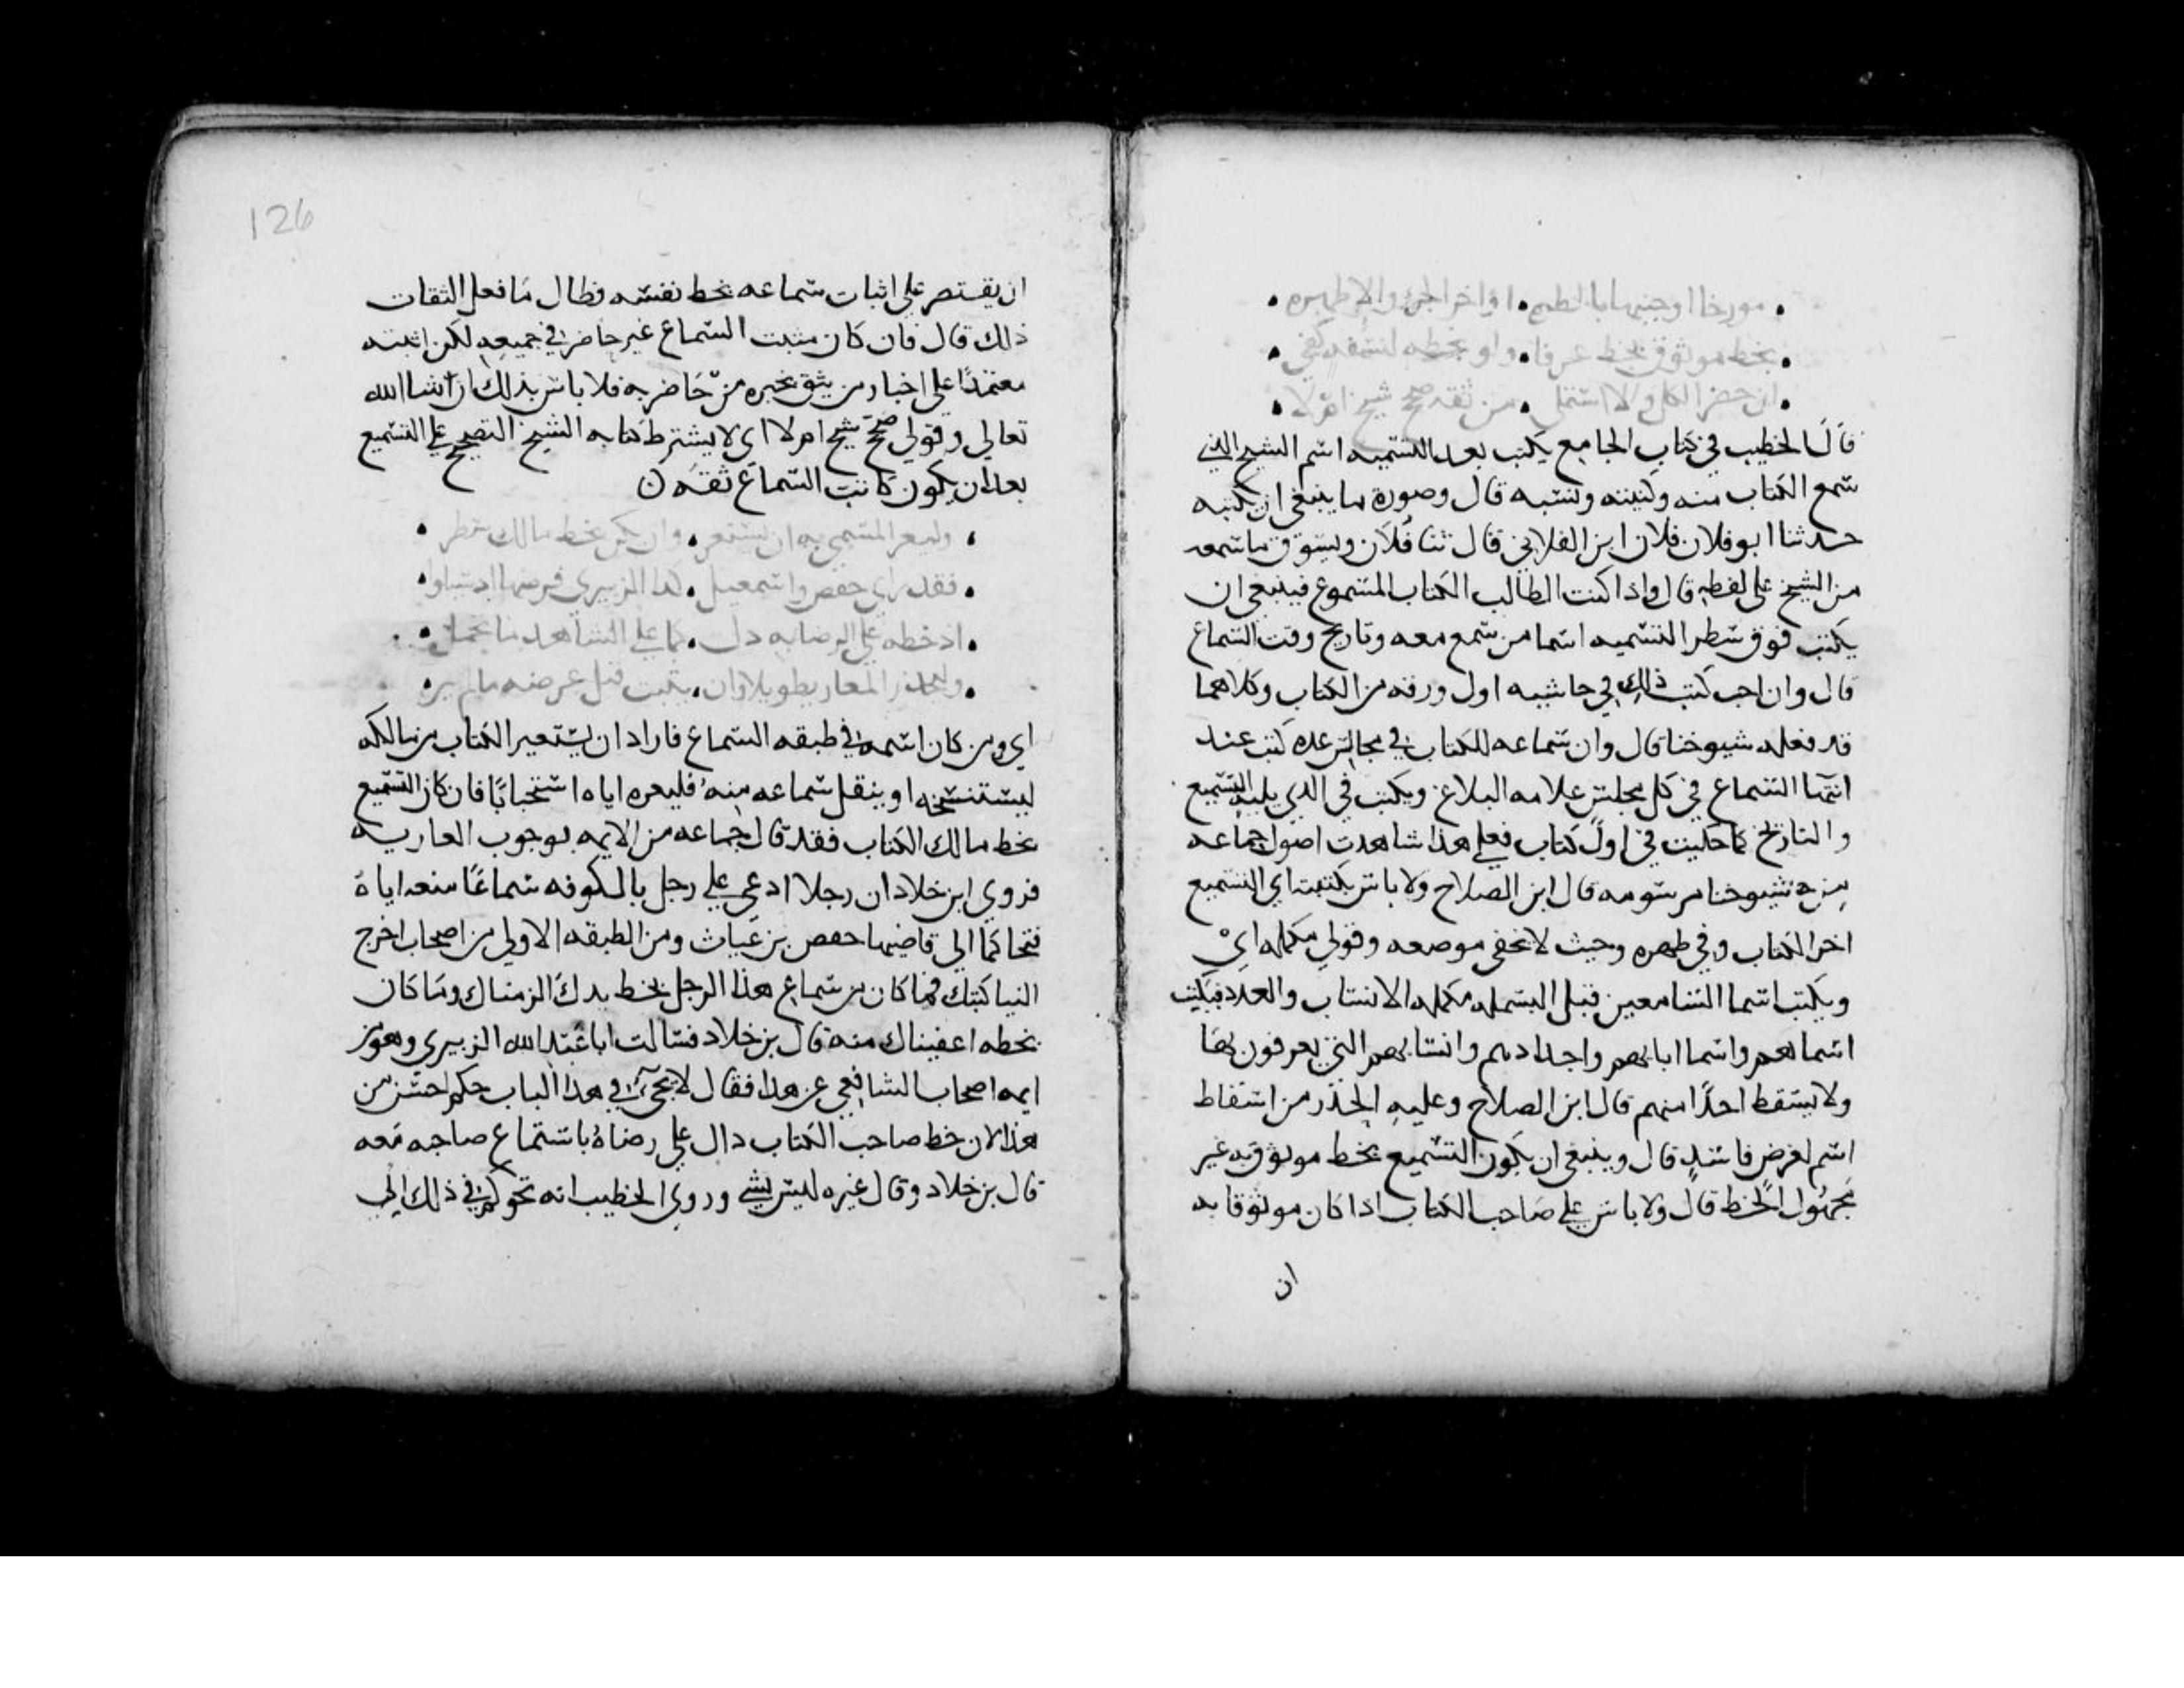 مورخا او جنبها بالطره او اخر الجزء والا ظهره
بخط موثوق بخط عرفا ولو بخطه لنفسه كفى
ان حضر الكل والا استملى من ثقة صحح شيخ ام لا
قال الخطيب في كتاب الجامع يكتب بعد التسميه اسم الشيخ الذي
سمع الكتاب منه وكنيته ونسبه قال وصورة ما ينبغي ان يكتبه
حدثنا ابو فلان فلان ابن الفلاني قال ثنا فلان ويسوق ما سمعه
من الشيخ على لفظه قال واذا كتب الطالب الكتاب المسموع فينبغي ان
يكتب فوق سطر التسميه اسما من سمع معه وتاريخ وقت السماع
قال وان احب كتب ذلك في حاشيه اول ورقه من الكتاب وكلاهما
قد فعله شيوخنا قال وان سماعه للكتاب في مجالس عده كتب عند
انتها السماع في كل مجلس علامه البلاغ ويكتب في الذي يليه التسميع
والتاريخ كما حكيت في اول كتاب فعلي هذا شاهدت اصول جماعه
من شيوخنا مرسومه قال ابن الصلاح ولا باس بكتبته اي التسميع
اخر الكتاب وفي ظهره وحيث لا يخفى موضعه وقولي مكمله اي
ويكتب اسما السامعين قبل البسمله مكمله الانساب والعدد فيكتب
اسماهم واسما ابايهم واجدادهم وانسابهم التي يعرفون بها
ولا يسقط احدا منهم قال ابن الصلاح وعليه الحذر من اسقاط
اسم لغرض فاسد قال وينبغي ان يكون التسميع بخط موثوق به غير
مجهول الخط قال ولا باس على صاحب الكتاب اذا كان موثوقا به
ان
126
ان يقتصر على اثبات سماعه بخط نفسه فطال ما فعل الثقات
ذلك قال فان كان مثبت السماع غير حاضر في جميعه لكن اثبته
معتمدا على اخبار من يثق بخبره من حاضريه فلا باس بذلك ان شا الله
تعالى وقولي صحح شيخ ام لا اي لا يشترط كتابه الشيخ التصحيح على التسميع
بعد ان يكون كاتب السماع ثقه ن
وليعر المسمى به ان يستعر وان يكن بخط مالك سطر
فقد راى حفص واسمعيل كذا الزبيري فرضها اذ سيلوا
اذ خطه على الرضا به دل كما على الشاهد ما تحمل
وليحذر المعار تطويلا وان يثبت قبل عرضه ما لم يبن
اي ومن كان اسمه في طبقه السماع فاراد ان يستعير الكتاب من مالكه
ليستنسخه او ينقل سماعه منه فليعره اياه استحبابا فان كان التسميع
بخط مالك الكتاب فقد قال جماعه من الايمه بوجوب العاريه
فروي ابن خلاد ان رجلا ادعى على رجل بالكوفه سماعا منعه اياه
فتحاكما الى قاضيها حفص بن غياث ومن الطبقه الاولى من اصحاب اخرج
الينا كتبك فما كان من سماع هذا الرجل بخط يدك الزمناك وما كان
بخطه اعفيناك منه قال بن خلاد فسالت ابا عبد الله الزبيري وهو من
ايمه اصحاب الشافعي عن هذا فقال لا يجي في هذا الباب حكم احسن من
هذا لان خط صاحب الكتاب دال على رضاه باستماع صاحبه معه
قال بن خلاد وقال غيره ليس بشي وروي الخطيب انه تحوكم في ذلك الى